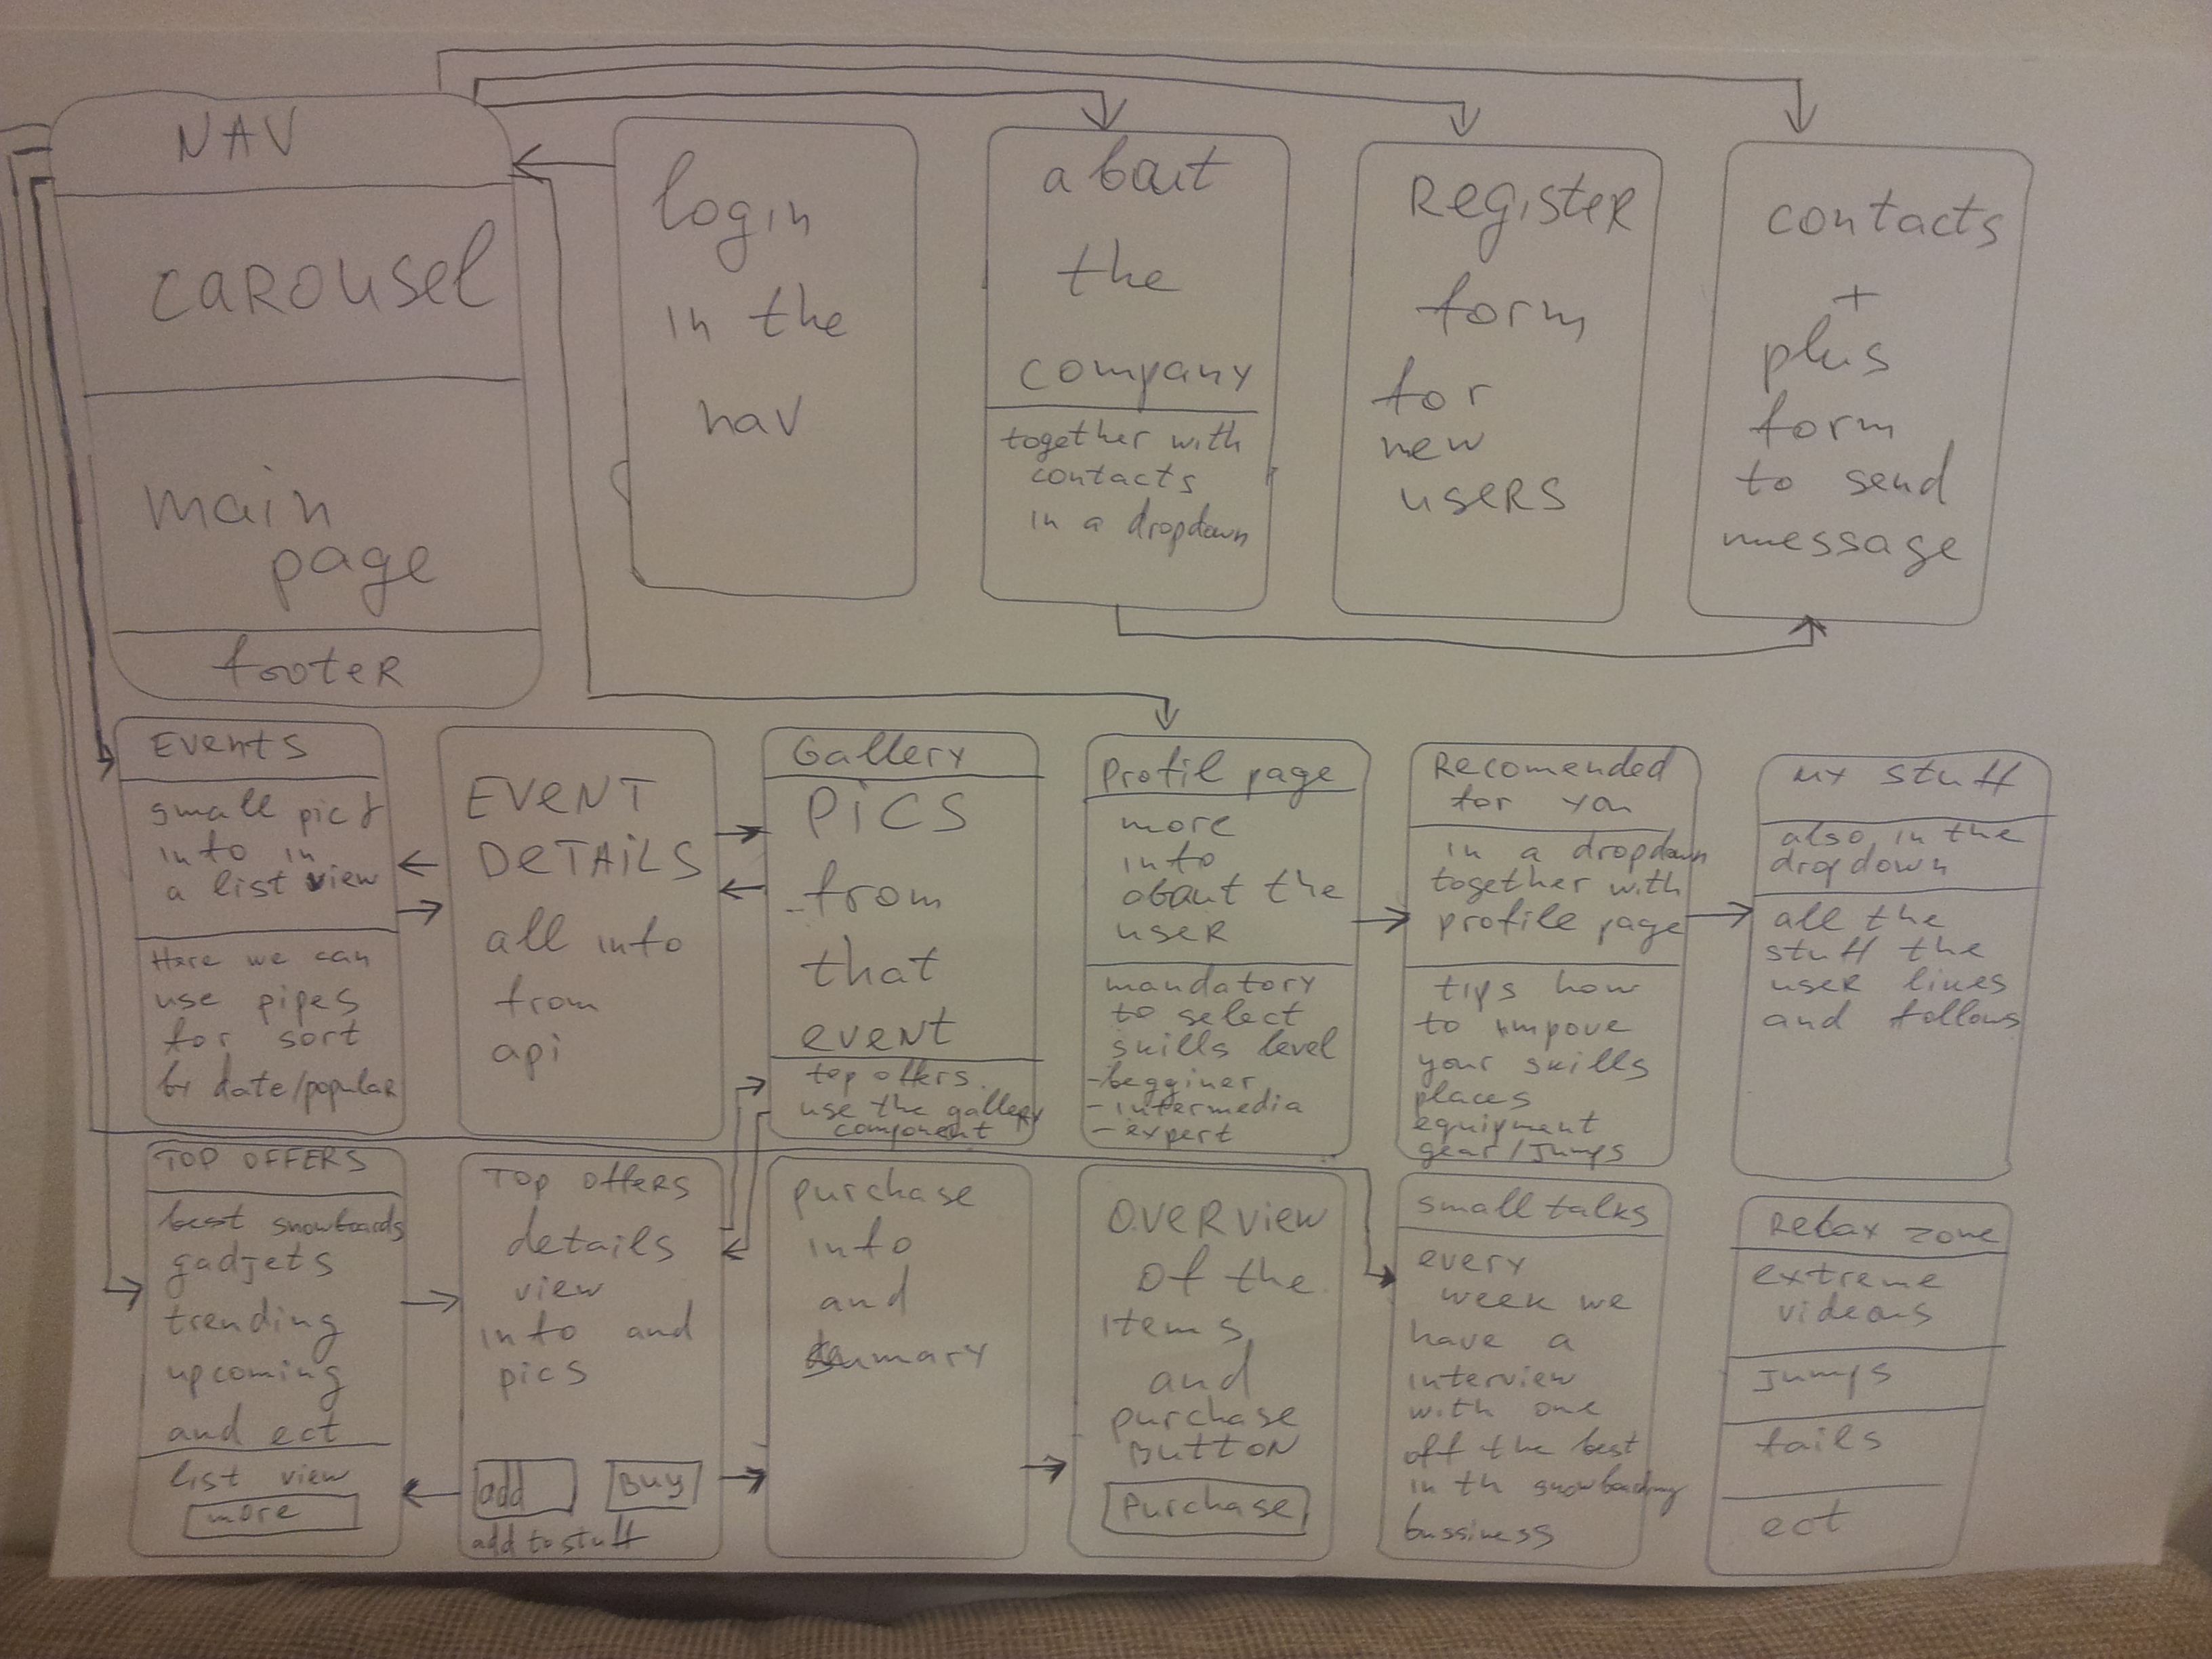 NAV
carousel
main
page
footer
login
in the
nav
about
the
company
together with
contacts
in a dropdown
Register
form
for
new
users
contacts
+
plus
form
to send
message
Events
small pics
info in
a list view
Here we can
use pipes
for sort
by date/popular
EVENT
DETAILS
all info
from
api
Gallery
PICS
from
that
event
top offers
use the gallery
component
Profil page
more
info
about the
user
mandatory
to select
skills level
- begginer
- intermedia
- expert
Recomended
for you
in a dropdown
together with
profile page
tips how
to impove
your skills
places
equipment
gear/Jumps
my stuff
also in the
dropdown
all the
stuff the
user likes
and follows
TOP OFFERS
best snowboards
gadjets
trending
upcoming
and ect
list view
more
Top offers
details
view
info and
pics
add
BUY
add to stuff
purchase
info
and
sumary
OVERview
of the
items
and
purchase
BUTTON
Purchase
small talks
every
week we
have a
interview
with one
off the best
in th snowboarding
bussiness
Relax zone
extreme
videous
Jumps
fails
ect